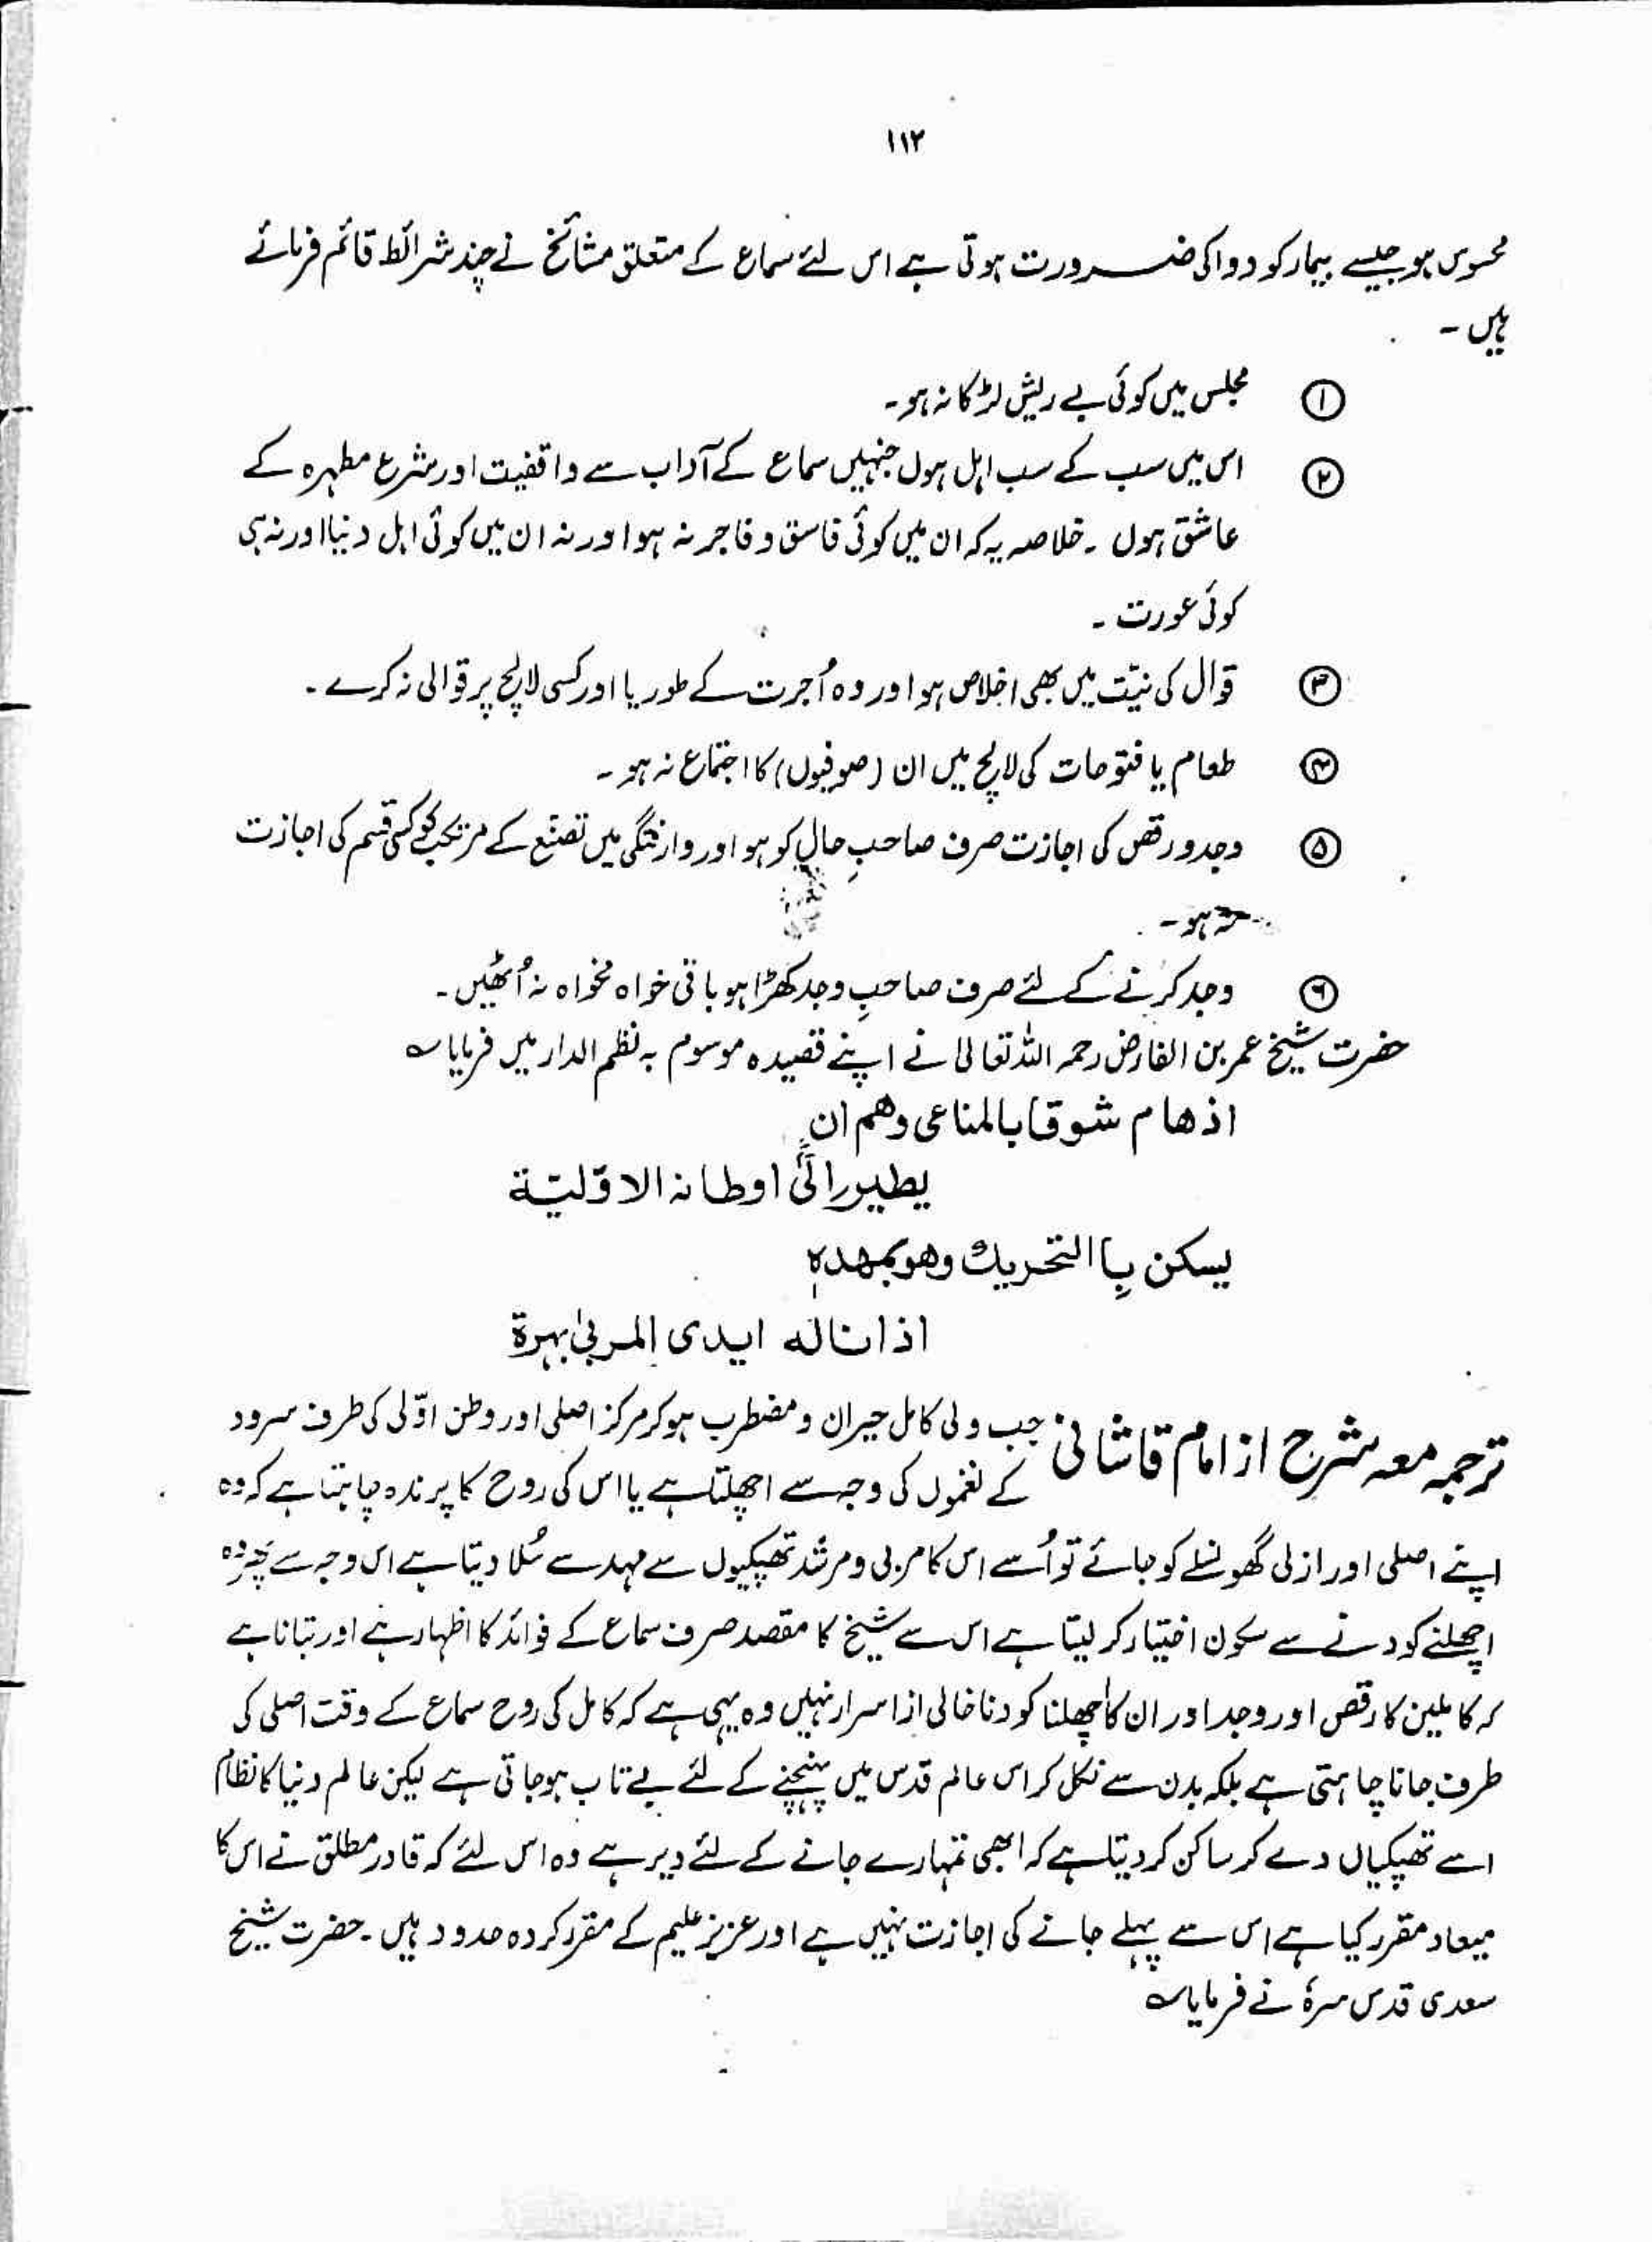 ۱۱۲
محسوس ہو جیسے بیمار کو دوا کی ضرورت ہوتی ہے اس لئے سماع کے متعلق مشائخ نے چند شرائط قائم فرمائے
ہیں ۔
① مجلس میں کوئی بے ریش لڑکا نہ ہو۔
② اس میں سب کے سب اہل ہوں جنہیں سماع کے آداب سے واقفیت اور شرع مطہرہ کے
عاشق ہوں ۔ خلاصہ یہ کہ ان میں کوئی فاسق و فاجر نہ ہو اور نہ ان میں کوئی اہل دنیا اور نہ ہی
کوئی عورت ۔
③ قوال کی نیّت میں بھی اخلاص ہو اور وہ اُجرت کے طور یا اور کسی لالچ پر قوالی نہ کرے ۔
④ طعام یا فتوحات کی لالچ میں ان (صوفیوں) کا اجتماع نہ ہو ۔
⑤ وجد و رقص کی اجازت صرف صاحبِ حال کو ہو اور وارفتگی میں تصنّع کے مرتکب کو کسی قسم کی اجازت
نہ ہو ۔
⑥ وجد کرنے کے لئے صرف صاحبِ وجد کھڑا ہو باقی خواہ مخواہ نہ اُٹھیں ۔
حضرت شیخ عمر بن الفارض رحمہ اللہ تعالیٰ نے اپنے قصیدہ موسوم بہ نظم الدار میں فرمایا ؎
اذ ھام شوقا بالمناعی وھم ان
یطیر الیٰ اوطانہ الاوّلیّۃ
یسکن بِا التحریک وھو بمھدہٖ
اذا نالہ ایدی المربیٰ بہرۃ
ترجمہ معہ شرح از امام قاشانی جب ولی کامل حیران و مضطرب ہو کر مرکز اصلی اور وطن اوّلی کی طرف سرود
کے نغموں کی وجہ سے اچھلتا ہے یا اس کی روح کا پرندہ چاہتا ہے کہ وہ
اپنے اصلی اور ازلی گھونسلے کو جائے تو اُسے اس کا مربی و مرشد تھپکیوں سے مہد سے سُلا دیتا ہے اس وجہ سے پھر وہ
اچھلنے کودنے سے سکون اختیار کر لیتا ہے اس سے شیخ کا مقصد صرف سماع کے فوائد کا اظہار ہے اور بتانا ہے
کہ کاملین کا رقص اور وجد اور ان کا اچھلنا کودنا خالی از اسرار نہیں وہ یہی ہے کہ کامل کی روح سماع کے وقت اصلی کی
طرف جانا چاہتی ہے بلکہ بدن سے نکل کر اس عالم قدس میں پہنچنے کے لئے بے تاب ہو جاتی ہے لیکن عالم دنیا کا نظام
اسے تھپکیاں دے کر ساکن کر دیتا ہے کہ ابھی تمہارے جانے کے لئے دیر ہے وہ اس لئے کہ قادر مطلق نے اس کا
میعاد مقرر کیا ہے اس سے پہلے جانے کی اجازت نہیں ہے اور عزیز علیم کے مقرر کردہ حدود ہیں ۔ حضرت شیخ
سعدی قدس سرہٗ نے فرمایا ؎